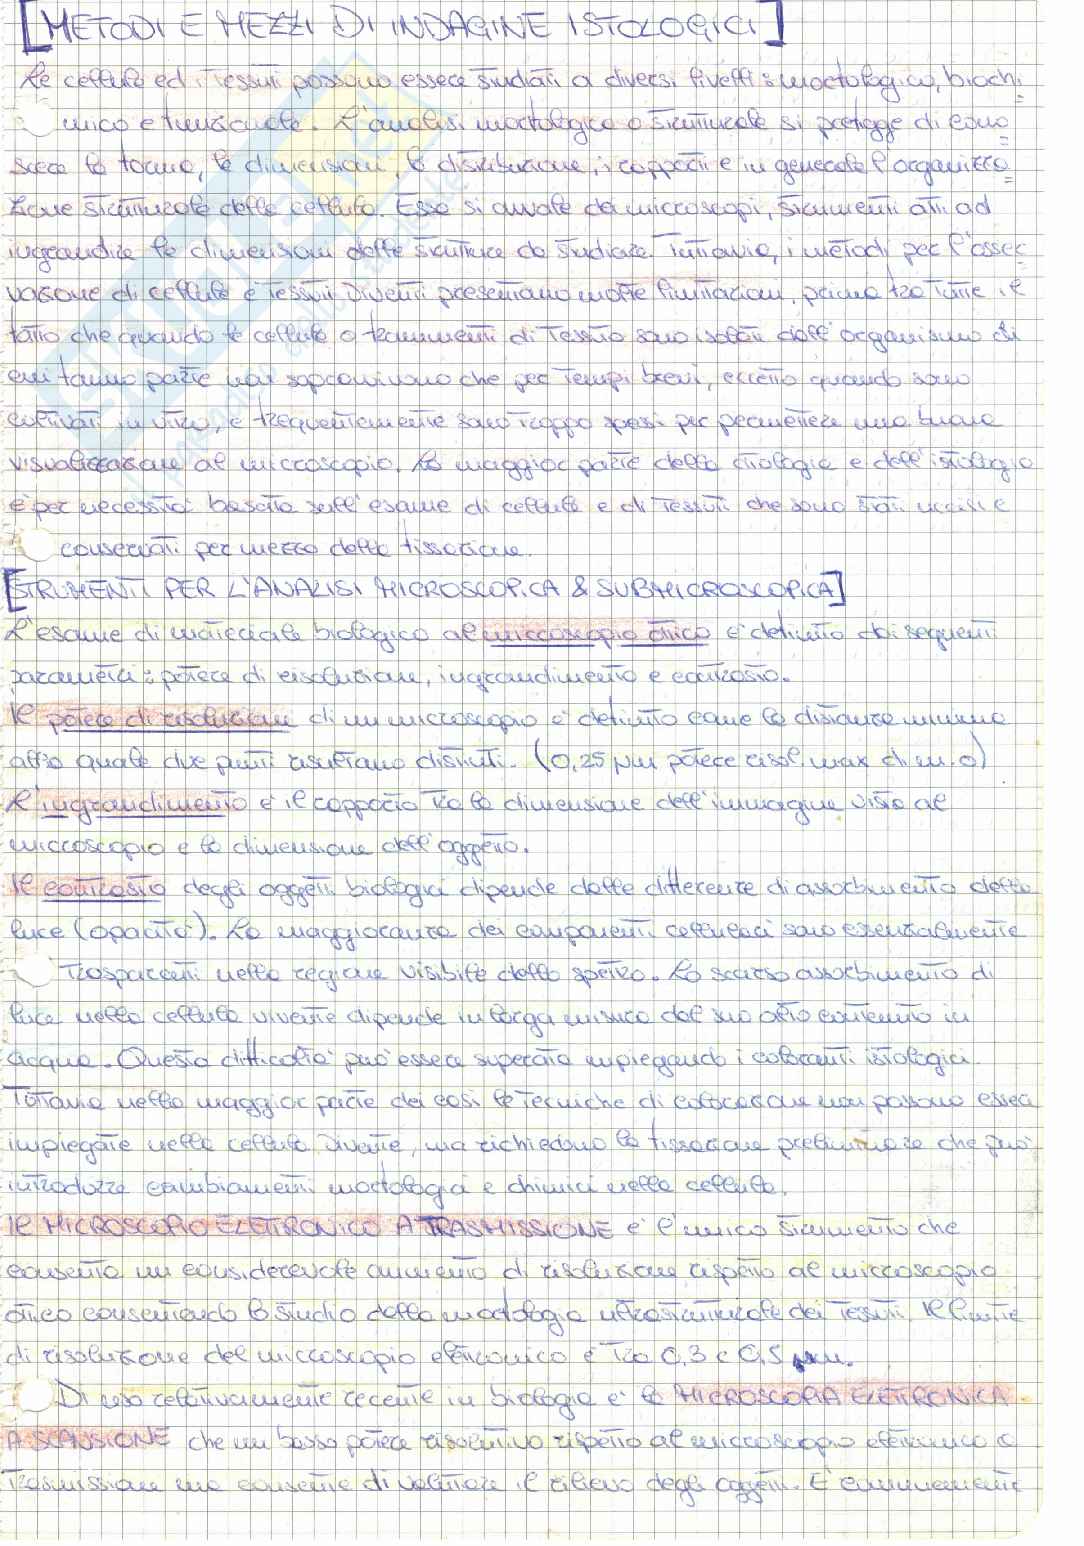 [METODI E MEZZI DI INDAGINE ISTOLOGICI]
Le cellule ed i Tessuti possono essere studiati a diversi livelli: morfologico, biochi
mico e funzionale. L'analisi morfologica o strutturale si prefigge di cono
scere la forma, le dimensioni, la distribuzione, i rapporti e in generale l'organizza
zione strutturale della cellula. Essa si avvale dei microscopi, strumenti atti ad
ingrandire le dimensioni delle strutture da studiare. Tuttavia, i metodi per l'osser
vazione di cellule e Tessuti viventi presentano molte limitazioni, prima tra tutte il
fatto che quando le cellule o frammenti di Tessuto sono isolati dall'organismo di
cui fanno parte non sopravvivono che per Tempi brevi, eccetto quando sono
coltivati in vitro, e frequentemente sono troppo spessi per permettere una buona
visualizzazione al microscopio. La maggior parte della citologia e dell'istologia
è per necessità basata sull'esame di cellule e di Tessuti che sono stati uccisi e
conservati per mezzo della fissazione.
[STRUMENTI PER L'ANALISI MICROSCOPICA & SUBMICROSCOPICA]
L'esame di materiale biologico al microscopio ottico è definito dai seguenti
parametri: potere di risoluzione, ingrandimento e contrasto.
Il potere di risoluzione di un microscopio è definito come la distanza minima
alla quale due punti risultano distinti. (0,25 µm potere risol. max di m.o)
L'ingrandimento è il rapporto tra la dimensione dell'immagine vista al
microscopio e la dimensione dell'oggetto.
Il contrasto degli oggetti biologici dipende dalle differenze di assorbimento della
luce (opacità). La maggioranza dei componenti cellulari sono essenzialmente
Trasparenti nella regione visibile dello spettro. Lo scarso assorbimento di
luce nella cellula vivente dipende in larga misura dal suo alto contenuto in
acqua. Questa difficoltà può essere superata impiegando i coloranti istologici.
Tuttavia nella maggior parte dei casi le Tecniche di colorazione non possono essere
impiegate nella cellula vivente, ma richiedono la fissazione preliminare che può
introdurre cambiamenti morfologici e chimici nella cellula.
Il MICROSCOPIO ELETTRONICO A TRASMISSIONE è l'unico strumento che
consenta un considerevole aumento di risoluzione rispetto al microscopio
ottico consentendo lo studio della morfologia ultrastrutturale dei Tessuti. Il limite
di risoluzione del microscopio elettronico è Tra 0,3 e 0,5 nm.
Di uso relativamente recente in biologia è la MICROSCOPIA ELETTRONICA
A SCANSIONE che un basso potere risolutivo rispetto al microscopio elettronico a
Trasmissione ma consente di valutare il rilievo degli oggetti. È comunemente